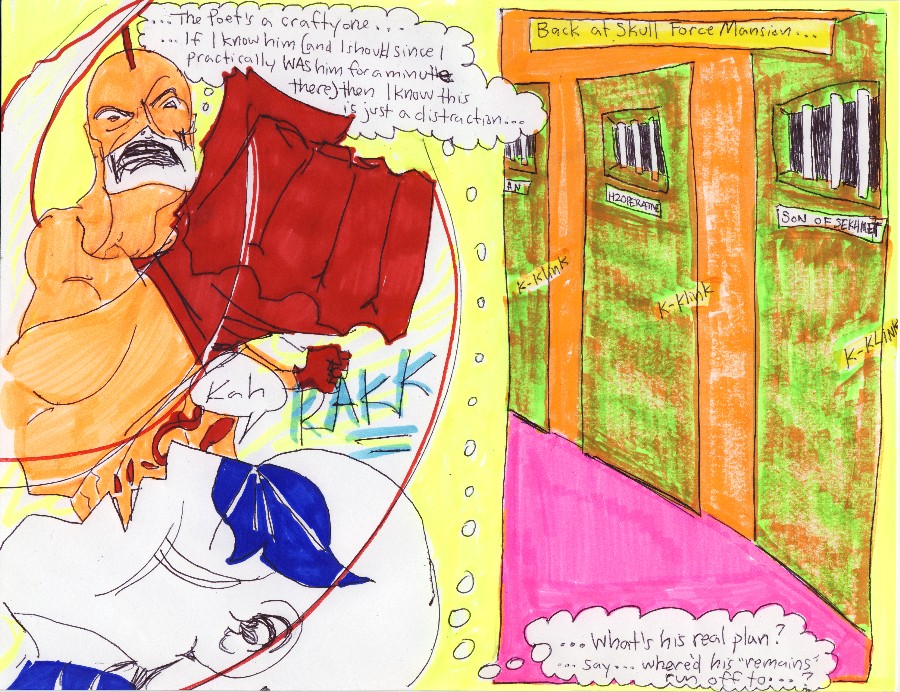 ...The Poet's a crafty one...
...If I know him (and I should since I
practically WAS him for a minute
there) then I know this
is just a distraction...
Kah
KAKK
Back at Skull Force Mansion...
AN
H2OPERATIVE
SON OF SEKHMET
K-Klink
K-Klink
K-KLINK
...What's his real plan?
... say... where'd his "remains"
run off to...?